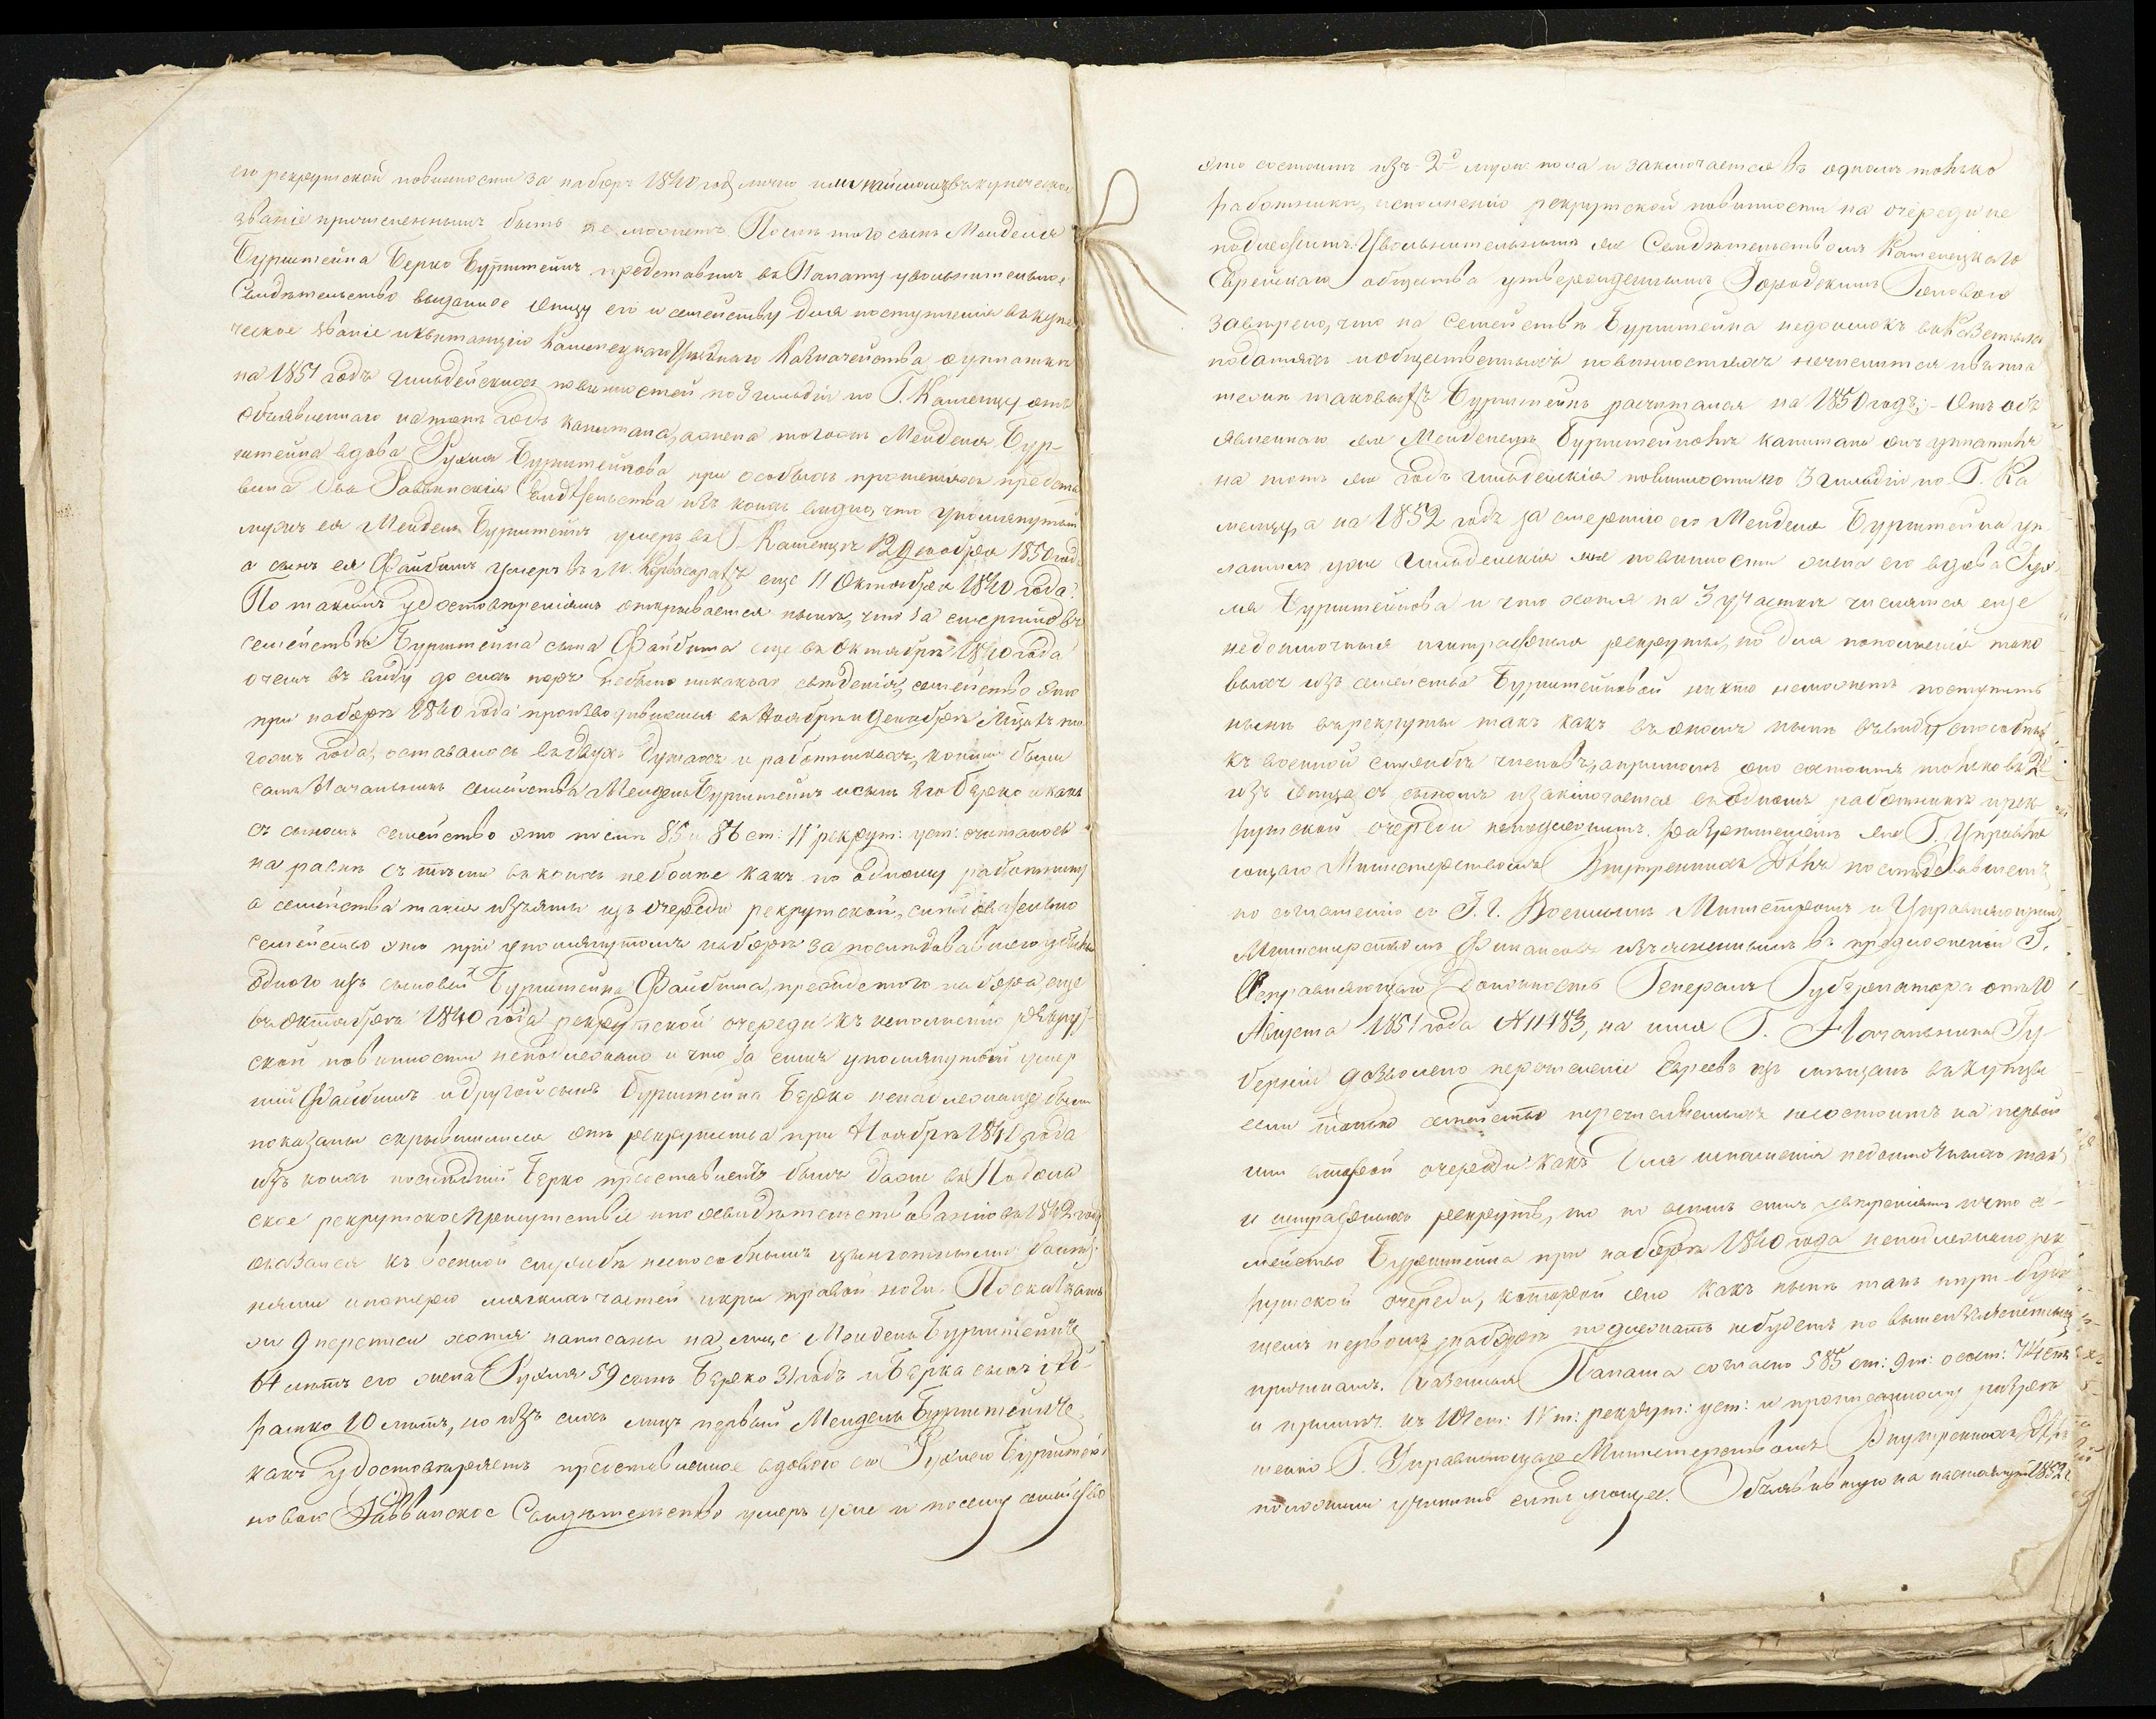 его рекрутской повинности за наборъ 1840 год лично купеческое
званіе причисленнымъ быть не можетъ. После того сынъ Менделя
Бурштейна Берко Бурштейнъ представилъ въ Палату увольнительное
Свидѣтельство выданное отцу его и семейству для поступленія въ купе
ческое званіе и квитанцію Каменецкаго Уѣзднаго Казначейства о уплатѣ
на 1851 годъ гильдейскихъ повинностей по 3 гильдіи по Г. Каменцу отъ
объявленнаго на тотъ годъ капитала, а жена того Менделя Бур-
штейна вдова Рухля Бурштейнова при особыхъ прошеніяхъ предста
вила два Раввинскія Свидѣтельства изъ коихъ видно, что упомянутый
мужъ ея Мендель Бурштейнъ умеръ въ Г. Каменцѣ 12 Декабря 1850 года
а сынъ ея Файбишъ умеръ въ М. еще 11 Октября 1840 года.
По такимъ удостовѣреніямъ открывается нынѣ, что за смертію въ
семействѣ Бурштейна сына Файбиша еще въ Октябрѣ 1840 года
о чемъ въ виду до сихъ поръ небыло никакаго свѣденія, семейство это
при наборѣ 1840 года производившемся въ Ноябрѣ и Декабрѣ Мѣсяцахъ
года, оставалось въ двухъ душахъ и работникахъ, коими были
самъ Начальникъ семейства Мендель Бурштейнъ и сынъ его Берко и какъ
съ сыномъ семейство это по силѣ 85 и 86 ст: 11 рекрут: уст: считалось
на равнѣ съ тѣми въ коихъ неболѣе какъ по одному работнику
а семейства такія изъяты изъ очереди рекрутской,
семейство это при упомянутомъ наборѣ за последовавшею убылью
одного изъ сыновей Бурштейна Файбиша, прежде того набора, еще
въ Октябрѣ 1840 года рекрутской очереди къ исполненію рекрут-
ской повинности неподлежало и что за симъ упомянутый умер
шій Файбишъ и другой сынъ Бурштейна Берко ненадлежаще были
показаны скрывшимися отъ рекрутства при Ноябрѣ 1841 года
изъ коихъ послѣдній Берко представленъ былъ даже въ Подоль
ское рекрутское Присутствіе и по освидѣтельствованію въ 1842 году
оказался къ военной службѣ неспособнымъ
и потерею мягкихъ частей икры правой ноги. По сказкамъ
же 9 переписи хотя написаны на лице Мендель Бурштейнъ
64 лѣтъ его жена Рухля 59 сынъ Берко 31 годъ и Берка сынъ
10 лѣтъ, но изъ сихъ лицъ первый Мендель Бурштейнъ
какъ удостовѣряетъ представленное вдовою его Рухлею Бурштей
новою Раввинское Свидѣтельство умеръ уже и посему семейство
это состоитъ изъ 2хъ муж: пола и заключается въ одномъ только
работникѣ, исполненію рекрутской повинности на очереди не
подлежитъ. Увольнительнымъ же Свидѣтельствомъ Каменецкаго
Еврейскаго общества утвержденнымъ Городскимъ Головою
завѣрено, что на Семействѣ Бурштейна недоимокъ въ Казенныхъ
податяхъ и общественныхъ повинностяхъ нечислится и въ пла
тежѣ таковыхъ Бурштейнъ расчитался на 1850 годъ; - Отъ объ
явленнаго же Менделемъ Бурштейномъ капитала онъ уплатилъ
на тотъ же годъ гильдейскія повинности по 3 гильдіи по Г. Ка
менцу, а на 1852 годъ за смертію его Менделя Бурштейна уп
латила уже Гильдейскія повинности жена его вдова Рух
ля Бурштейнова и что хотя на 3 участкѣ числятся еще
недоимочныя и штрафныя рекруты, но для пополненія тако
выхъ изъ семейства Бурштейновой никто неможетъ поступить
нынѣ въ рекруты такъ какъ въ ономъ нынѣ въ виду способныхъ
къ военной службѣ членовъ, оно состоитъ только въ 2хъ
изъ отца съ сыномъ и заключается въ одномъ работникѣ и рек
рутской очереди неподлежитъ. Разрѣшеніемъ же Г. Управля
ющаго Министерствомъ Внутреннихъ Дѣлъ последовавшемъ
по соглашенію съ Г. Г. Военнымъ Министромъ и Управляющимъ
Министерствомъ Финансовъ изъясненнымъ въ предложеніи Г.
Исправляющаго Должность Генералъ Губернатора отъ 10
Августа 1851 года № 11483, на имя Г. Начальника Гу-
берніи дозволено перечисленіе Евреевъ изъ мѣщанъ въ купцы
если только семейство перечисляемыхъ несостоитъ на первой
или второй очереди какъ для исполненія недоимочныхъ такъ
и штрафныхъ рекрутъ, то по всѣмъ симъ увѣреніямъ и что се-
мейство Бурштейна при наборѣ 1840 года неподлежало рек
рутской очереди, которой оно какъ нынѣ такъ и при буду
щемъ первомъ наборѣ подлежать небудетъ по вышеизъясненнымъ
причинамъ. Казенная Палата согласно 585 ст: 9 т: о сост: 74 ст:
и примѣч. къ 101 ст: IV т: рекрут: уст: и прописанному разрѣ
шенію Г. Управляющаго Министерствомъ Внутреннихъ Дѣлъ
положили учинить слѣдующее. Объявившую на настоящій 1852 г.